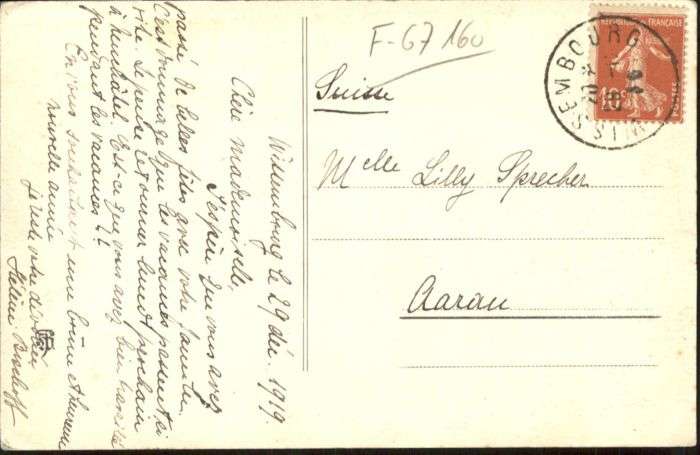 Wissembourg le 29 déc. 1919
Chère Mademoiselle,
J'espère que vous avez
passé de belles fêtes avec votre famille.
C'est dommage que les vacances passent si
vite. Je pense retourner lundi prochain
à Neuchâtel. Est-ce que vous avez bien travaillé
pendant les vacances?
En vous souhaitant une bonne et heureuse
nouvelle année
je suis votre
Hélène Bischoff
F-67160
WISSEMBOURG
RÉPUBLIQUE FRANÇAISE
10
Suisse
Melle Lilly Sprecher
Aarau